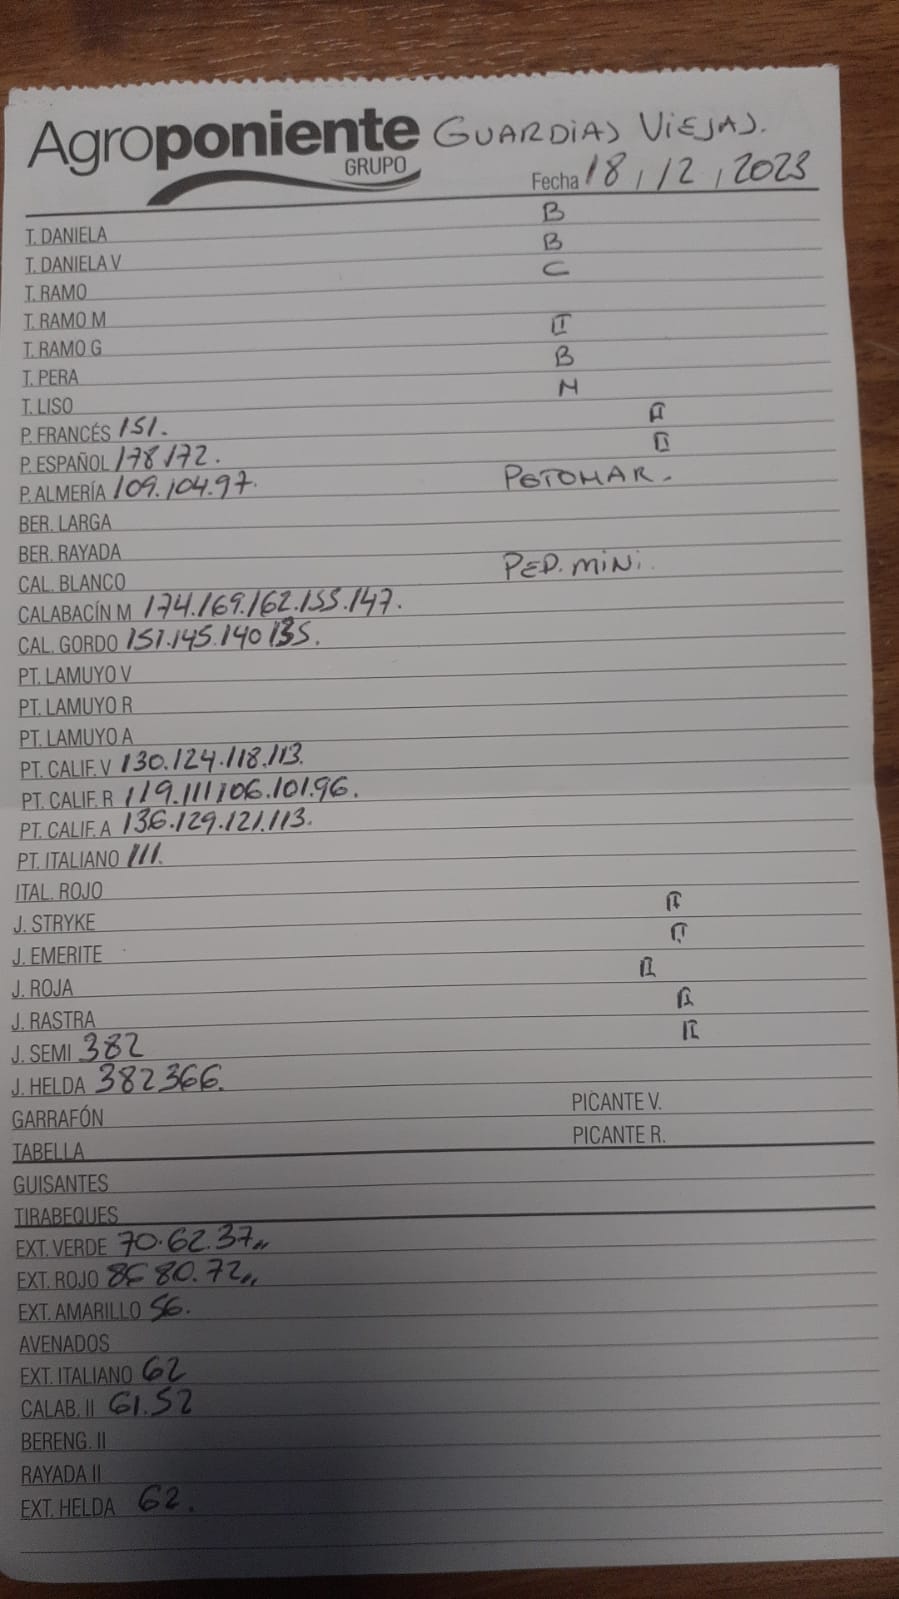 Agroponiente GUARDIAS VIEJAS.
GRUPO
Fecha 18, 12, 2023
T. DANIELA B
T. DANIELA V B
T. RAMO C
T. RAMO M
T. RAMO G II
T. PERA B
T. LISO M
P. FRANCÉS 151. II
P. ESPAÑOL 178.172. II
P. ALMERÍA 109.104.97. PETOMAR.
BER. LARGA
BER. RAYADA
CAL. BLANCO PED. MINI.
CALABACÍN M 174.169.162.155.147.
CAL. GORDO 151.145.140 135.
PT. LAMUYO V
PT. LAMUYO R
PT. LAMUYO A
PT. CALIF. V 130.124.118.113.
PT. CALIF. R 119.111.106.101.96.
PT. CALIF. A 136.129.121.113.
PT. ITALIANO 111.
ITAL. ROJO
J. STRYKE II
J. EMERITE II
J. ROJA II
J. RASTRA II
J. SEMI 382 II
J. HELDA 382 366.
GARRAFÓN PICANTE V.
TABELLA PICANTE R.
GUISANTES
TIRABEQUES
EXT. VERDE 70.62.37,,
EXT. ROJO 80.72,,
EXT. AMARILLO 56.
AVENADOS
EXT. ITALIANO 62
CALAB. II 61.52
BERENG. II
RAYADA II
EXT. HELDA 62.